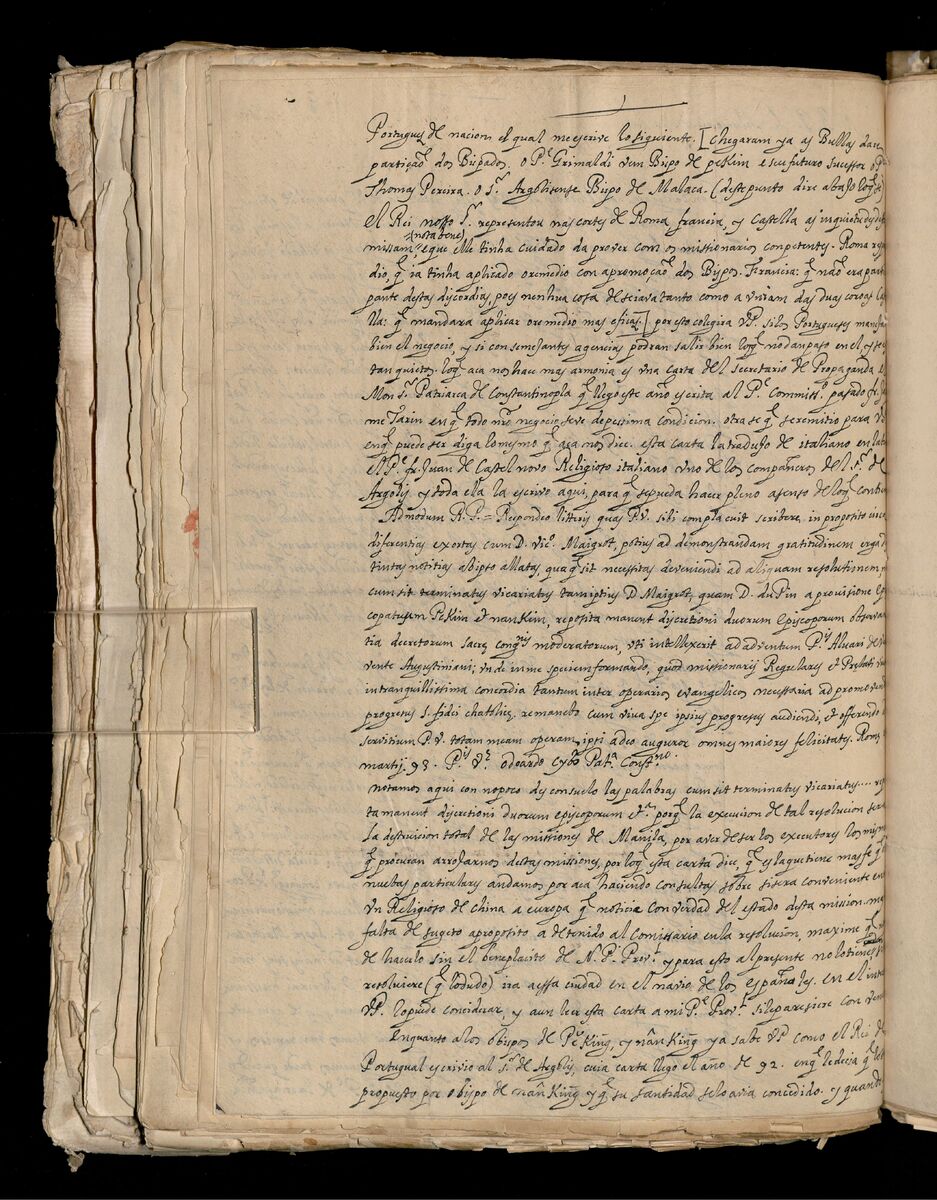 Portugues de nacion el qual me escrive lo siguiente. [Chegaram ya as Bullas da re
partiçaõ dos Bispados. o P.e Grimaldi vem Bispo de pekim e seu futuro sucessor o P.e
Thomas Pereira. o S.r Argolisense Bispo de Malaca. (deste punto dire abajo loq̃ se)
el Rei nosso S.r representou nas cortes de Roma francia, y Castella as inquietudes de
missam, (nota bene) e que elle tinha cuidado da prover com os missionarios conpetentes. Roma respon
dio, q̃ ia tinha aplicado o remedio con apromoçaõ dos Bispos. Francia: q̃ naõ era parti
pante destas discordias, poes nenhua cosa deseiava tanto como a uniam das duas coroas. Caste
lla: q̃ mandara aplicar oremedio mas eficas.] por esto colegira VP. silos Portugueses manejan
bien el negocio, y si con semejantes agencias podran salir bien loq̃ no dan paso en el y se
tan quietos. loq̃ aca nos hace mas armonia es vna carta del secretario de Propaganda el
Mon S.r Patriarca de Constantinopla q̃ llego este año escrita al P.e Commiss.o pasado fr. Jay
me Tarin en q̃ todo nro negocio se ve de pessima condicion. otra se q̃ se remitio para VP
en q̃ puede ser diga lo mismo q̃ aca nos dice. esta carta la tradujo de italiano en latin
el P.e fr. Juan de Castelnovo Religioso italiano vno de los compañeros del S.r de
Argolis y toda ella la escrivo aqui, para q̃ se pueda hacer pleno asenso de loq̃ contiene
Admodum R. P. = Respondeo litteris quas P.V. sibi complacuit scribere in proposito circa
diferentias exortas cum D. Vic.o Maigrot, potius ad demonstrandam gratitudinem erga
tintas notitias abipso allatas, quaq̃ sit necessitas deveniendi ad aliquam resolutionem,
cum sit terminatus vicariatus tam ipsius D. Maigrot, quam D. du Pin a provisione Epis
copatuum Pekim et nankim, reposita manent discretioni duorum Episcoporum observan
tia decretorum sacre congnis moderatorum, vti intellexerit ad adventum P.is Alvari de
vente Augustiniani; vnde in me speciem formando, quod missionarij Regulares et Prelati
intranquillissima concordia tantum inter operarios evangelicos necessaria ad promovendos
progresus s. fidei chatolice. remanebo cum viva spe ipsius progresus audiendi, et offerendo
servitium P. V. totam meam operam, ipsi adeo auguror omnes maiores felicitates. Roma
martij. 98. P.is V.e odoardo Cybo Pat.a Const.no
notamos aqui con no poco desconsuelo las palabras cum sit terminatus vicariatus.... re
ta manent discretioni duorum episcoporum et.a porq̃ la execusion de tal resolucion sera
la destruicion total de las missiones de Manila, por aver de ser los executores los mismos
q̃ procuran arrojarnos destas missiones, por loq̃ esta carta dice, q̃ es la que tiene mas fe q̃
nuebas particulares andamos por aca haciendo consultas sobre si sera conveniente en
vn Religioso de china a europa q̃ noticie con verdad del estado desta mission. mas
falta de sugeto aproposito a detenido al Comissario en la resolucion, maxime q̃
de hacerlo sin el beneplacito de N. P. Prov.l y para esto al presente no lo tiene, si
resolviere (q̃ lo dudo) ira a essa ciudad en el navio de los españoles. en el inter
VP. lo puede considerar, y aun leer esta carta a mi P.e Prov.l si le paresiere con ven
Enquanto a los obispos de Pe King, y nân King ya sabe VP. como el Rei de
Portugual escrivio al S.r de Argolis, cuia carta llego el año de 92. en q̃ le decia q̃ le
propuesto por obispo de nân King y q̃ su santidad se lo avia concedido. y quando